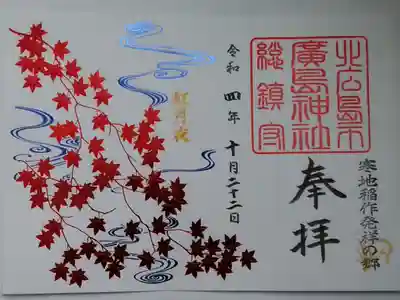 北広島市
廣島神社
総鎮守
寒地稲作発祥の郷
奉拝
令和四年十月二十二日